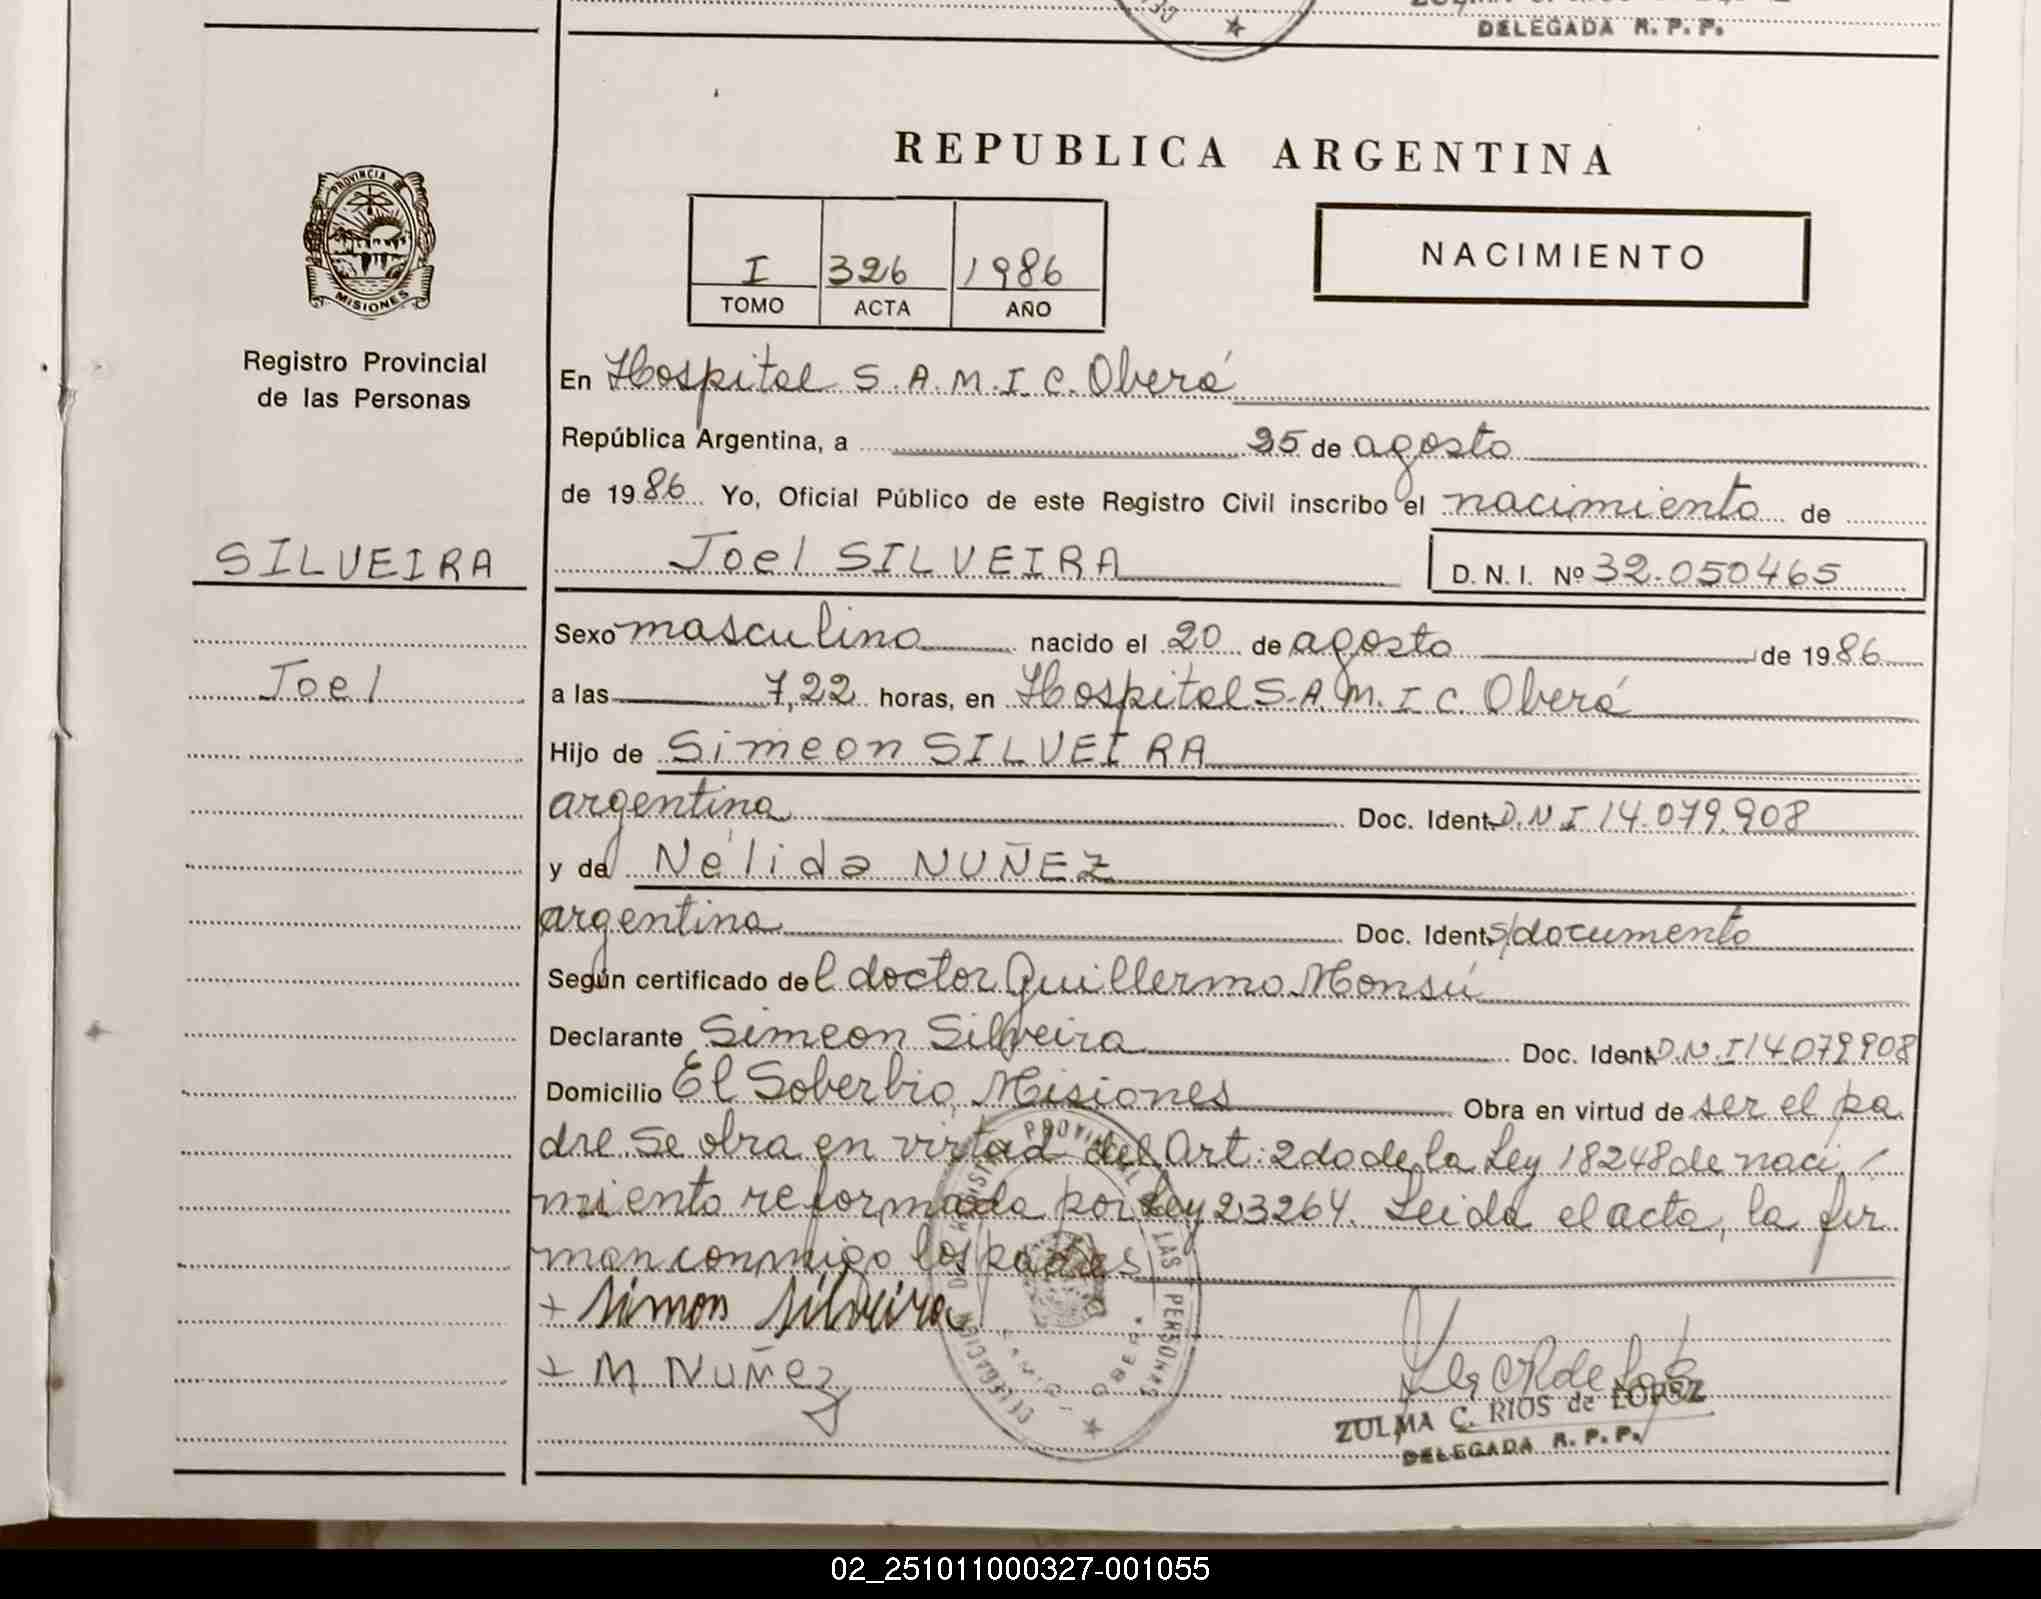 DELEGADA R. P. P.
REPUBLICA ARGENTINA
PROVINCIA DE
MISIONES
I 326 1986
TOMO ACTA AÑO
NACIMIENTO
Registro Provincial
de las Personas
En Hospital S.A.M.I.C. Oberá
República Argentina, a 25 de agosto
de 1986 Yo, Oficial Público de este Registro Civil inscribo el nacimiento de
SILVEIRA
Joel SILVEIRA D.N.I. Nº 32.050465
Sexo masculino nacido el 20 de agosto de 1986
Joel
a las 7,22 horas, en Hospital S.A.M.I.C. Oberá
Hijo de Simeon SILVEIRA
argentina Doc. Ident. D.N.I 14.079.908
y de Nélida NUÑEZ
argentina Doc. Ident. s/documento
Según certificado del doctor Guillermo Monsú
Declarante Simeon Silveira Doc. Ident. D.N.I 14079908
Domicilio El Soberbio, Misiones Obra en virtud de ser el pa
dre. Se obra en virtad del Art: 2do de la Ley 18248 de naci
miento reformada por Ley 23264. Leida el acta, la fir
man conmigo los padres
+ Simon Silveira
+ M NUÑez
ZULMA C. RIOS de LOPEZ
DELEGADA R. P. P.
LAS PERSONAS
02_251011000327-001055